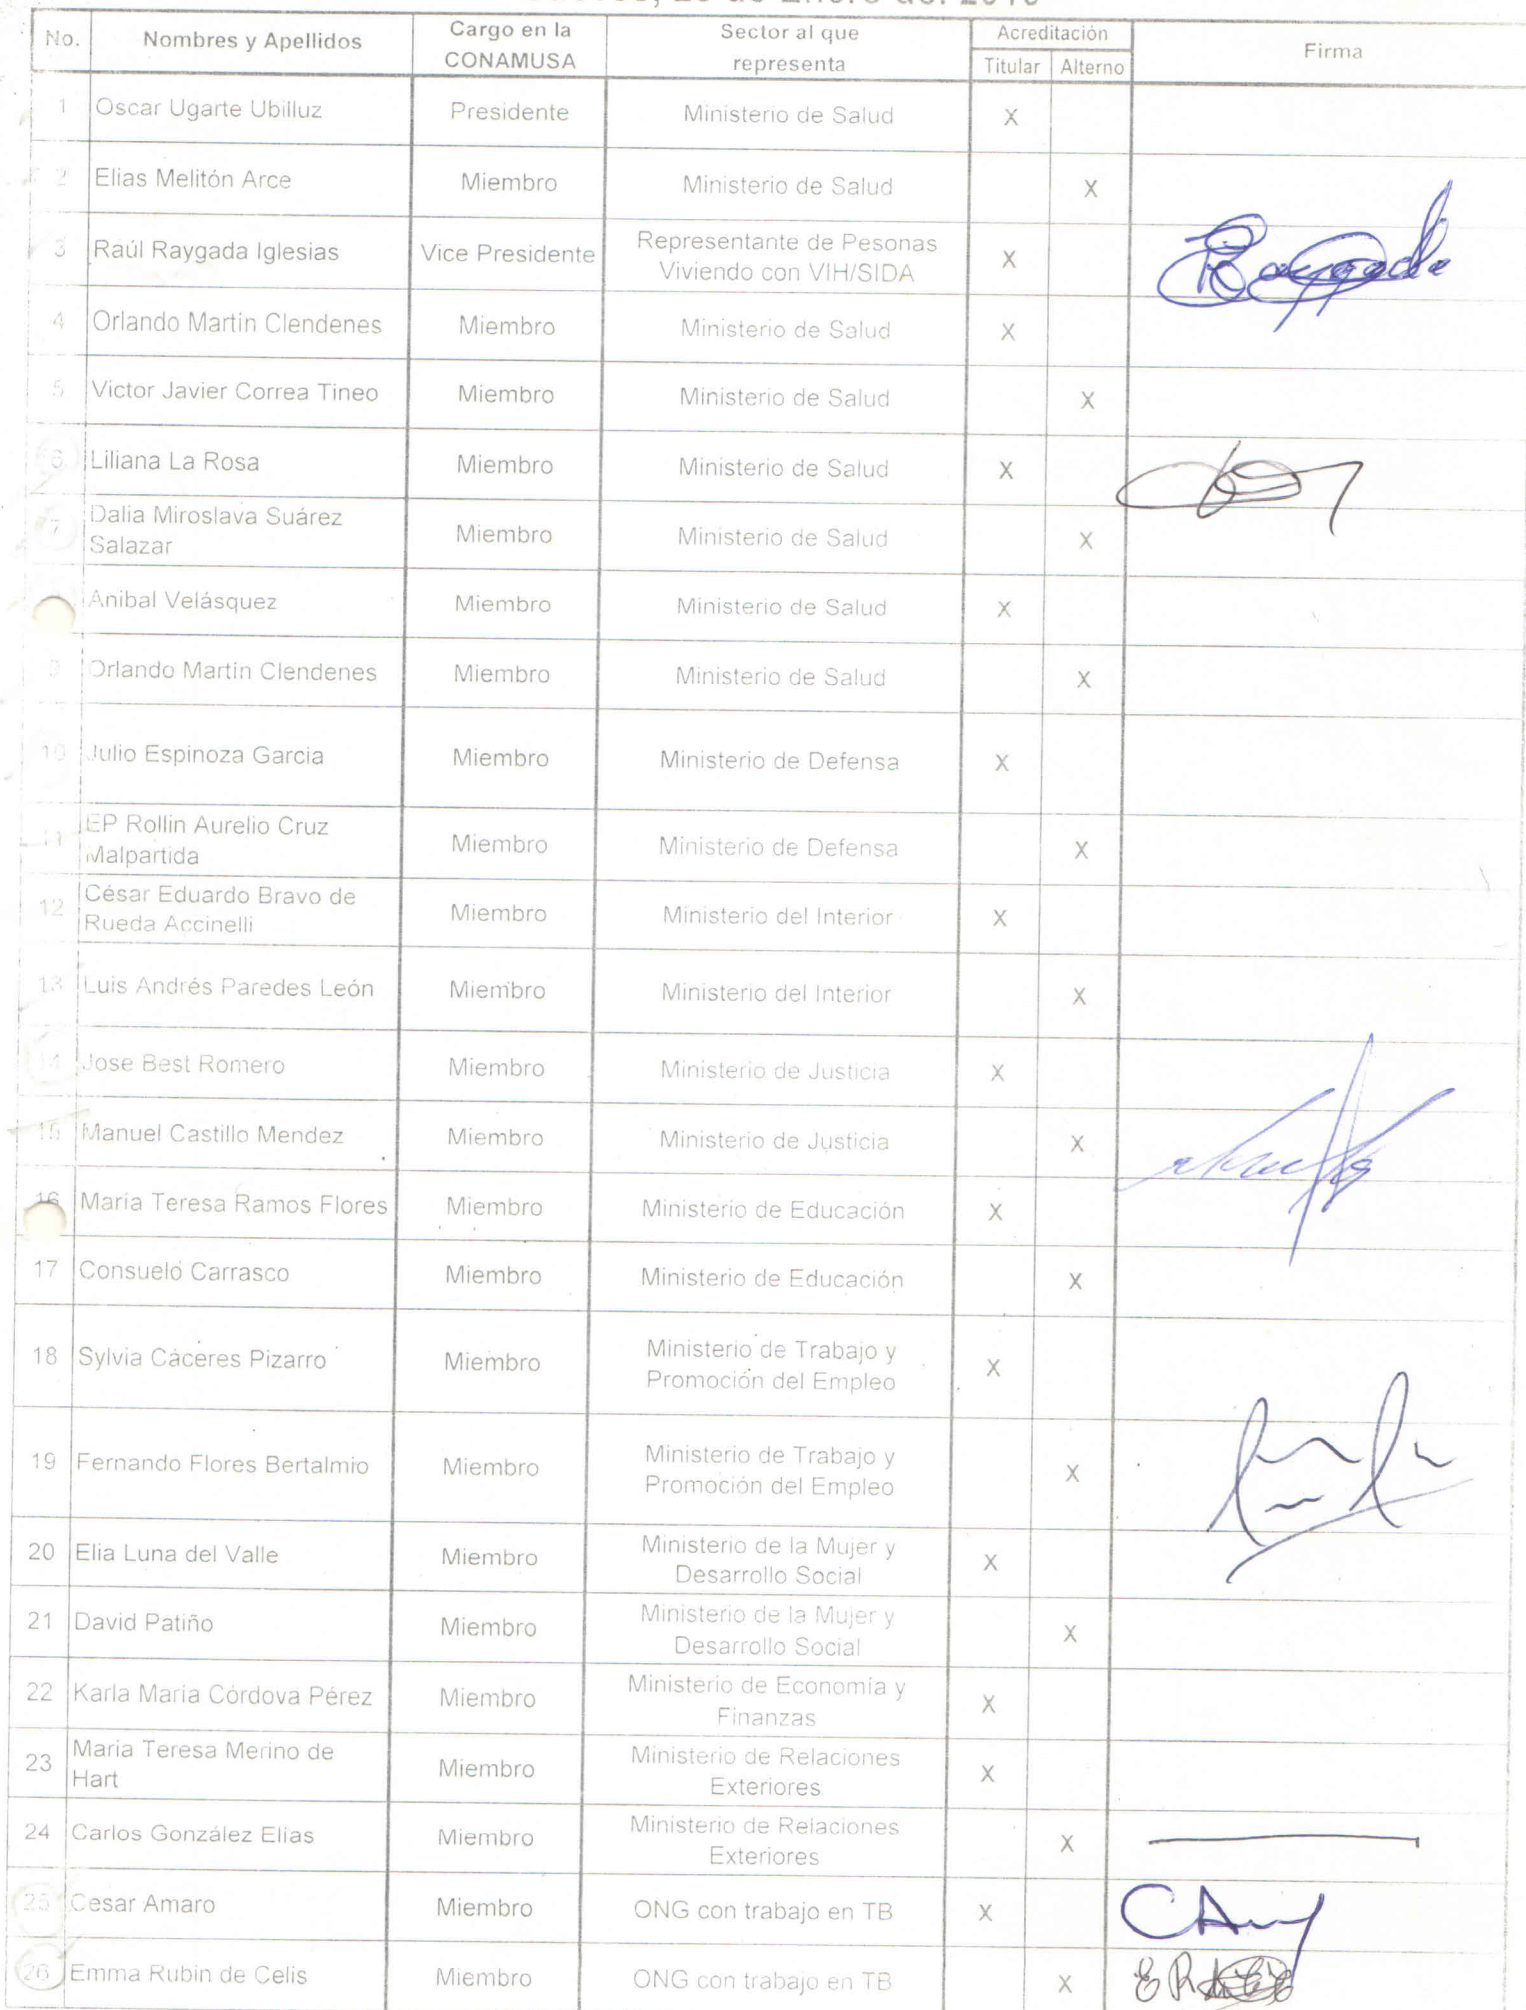 No. Nombres y Apellidos Cargo en la CONAMUSA Sector al que representa Acreditación Titular Alterno Firma
1 Oscar Ugarte Ubilluz Presidente Ministerio de Salud X
2 Elias Melitón Arce Miembro Ministerio de Salud X
3 Raúl Raygada Iglesias Vice Presidente Representante de Pesonas Viviendo con VIH/SIDA X
4 Orlando Martin Clendenes Miembro Ministerio de Salud X
5 Victor Javier Correa Tineo Miembro Ministerio de Salud X
6 Liliana La Rosa Miembro Ministerio de Salud X
7 Dalia Miroslava Suárez Salazar Miembro Ministerio de Salud X
Anibal Velásquez Miembro Ministerio de Salud X
9 Orlando Martin Clendenes Miembro Ministerio de Salud X
10 Julio Espinoza Garcia Miembro Ministerio de Defensa X
11 EP Rollin Aurelio Cruz Malpartida Miembro Ministerio de Defensa X
12 César Eduardo Bravo de Rueda Accinelli Miembro Ministerio del Interior X
13 Luis Andrés Paredes León Miembro Ministerio del Interior X
14 Jose Best Romero Miembro Ministerio de Justicia X
15 Manuel Castillo Mendez Miembro Ministerio de Justicia X
16 Maria Teresa Ramos Flores Miembro Ministerio de Educación X
17 Consuelo Carrasco Miembro Ministerio de Educación X
18 Sylvia Cáceres Pizarro Miembro Ministerio de Trabajo y Promoción del Empleo X
19 Fernando Flores Bertalmio Miembro Ministerio de Trabajo y Promoción del Empleo X
20 Elia Luna del Valle Miembro Ministerio de la Mujer y Desarrollo Social X
21 David Patiño Miembro Ministerio de la Mujer y Desarrollo Social X
22 Karla María Córdova Pérez Miembro Ministerio de Economía y Finanzas X
23 Maria Teresa Merino de Hart Miembro Ministerio de Relaciones Exteriores X
24 Carlos González Elias Miembro Ministerio de Relaciones Exteriores X
25 Cesar Amaro Miembro ONG con trabajo en TB X
26 Emma Rubin de Celis Miembro ONG con trabajo en TB X